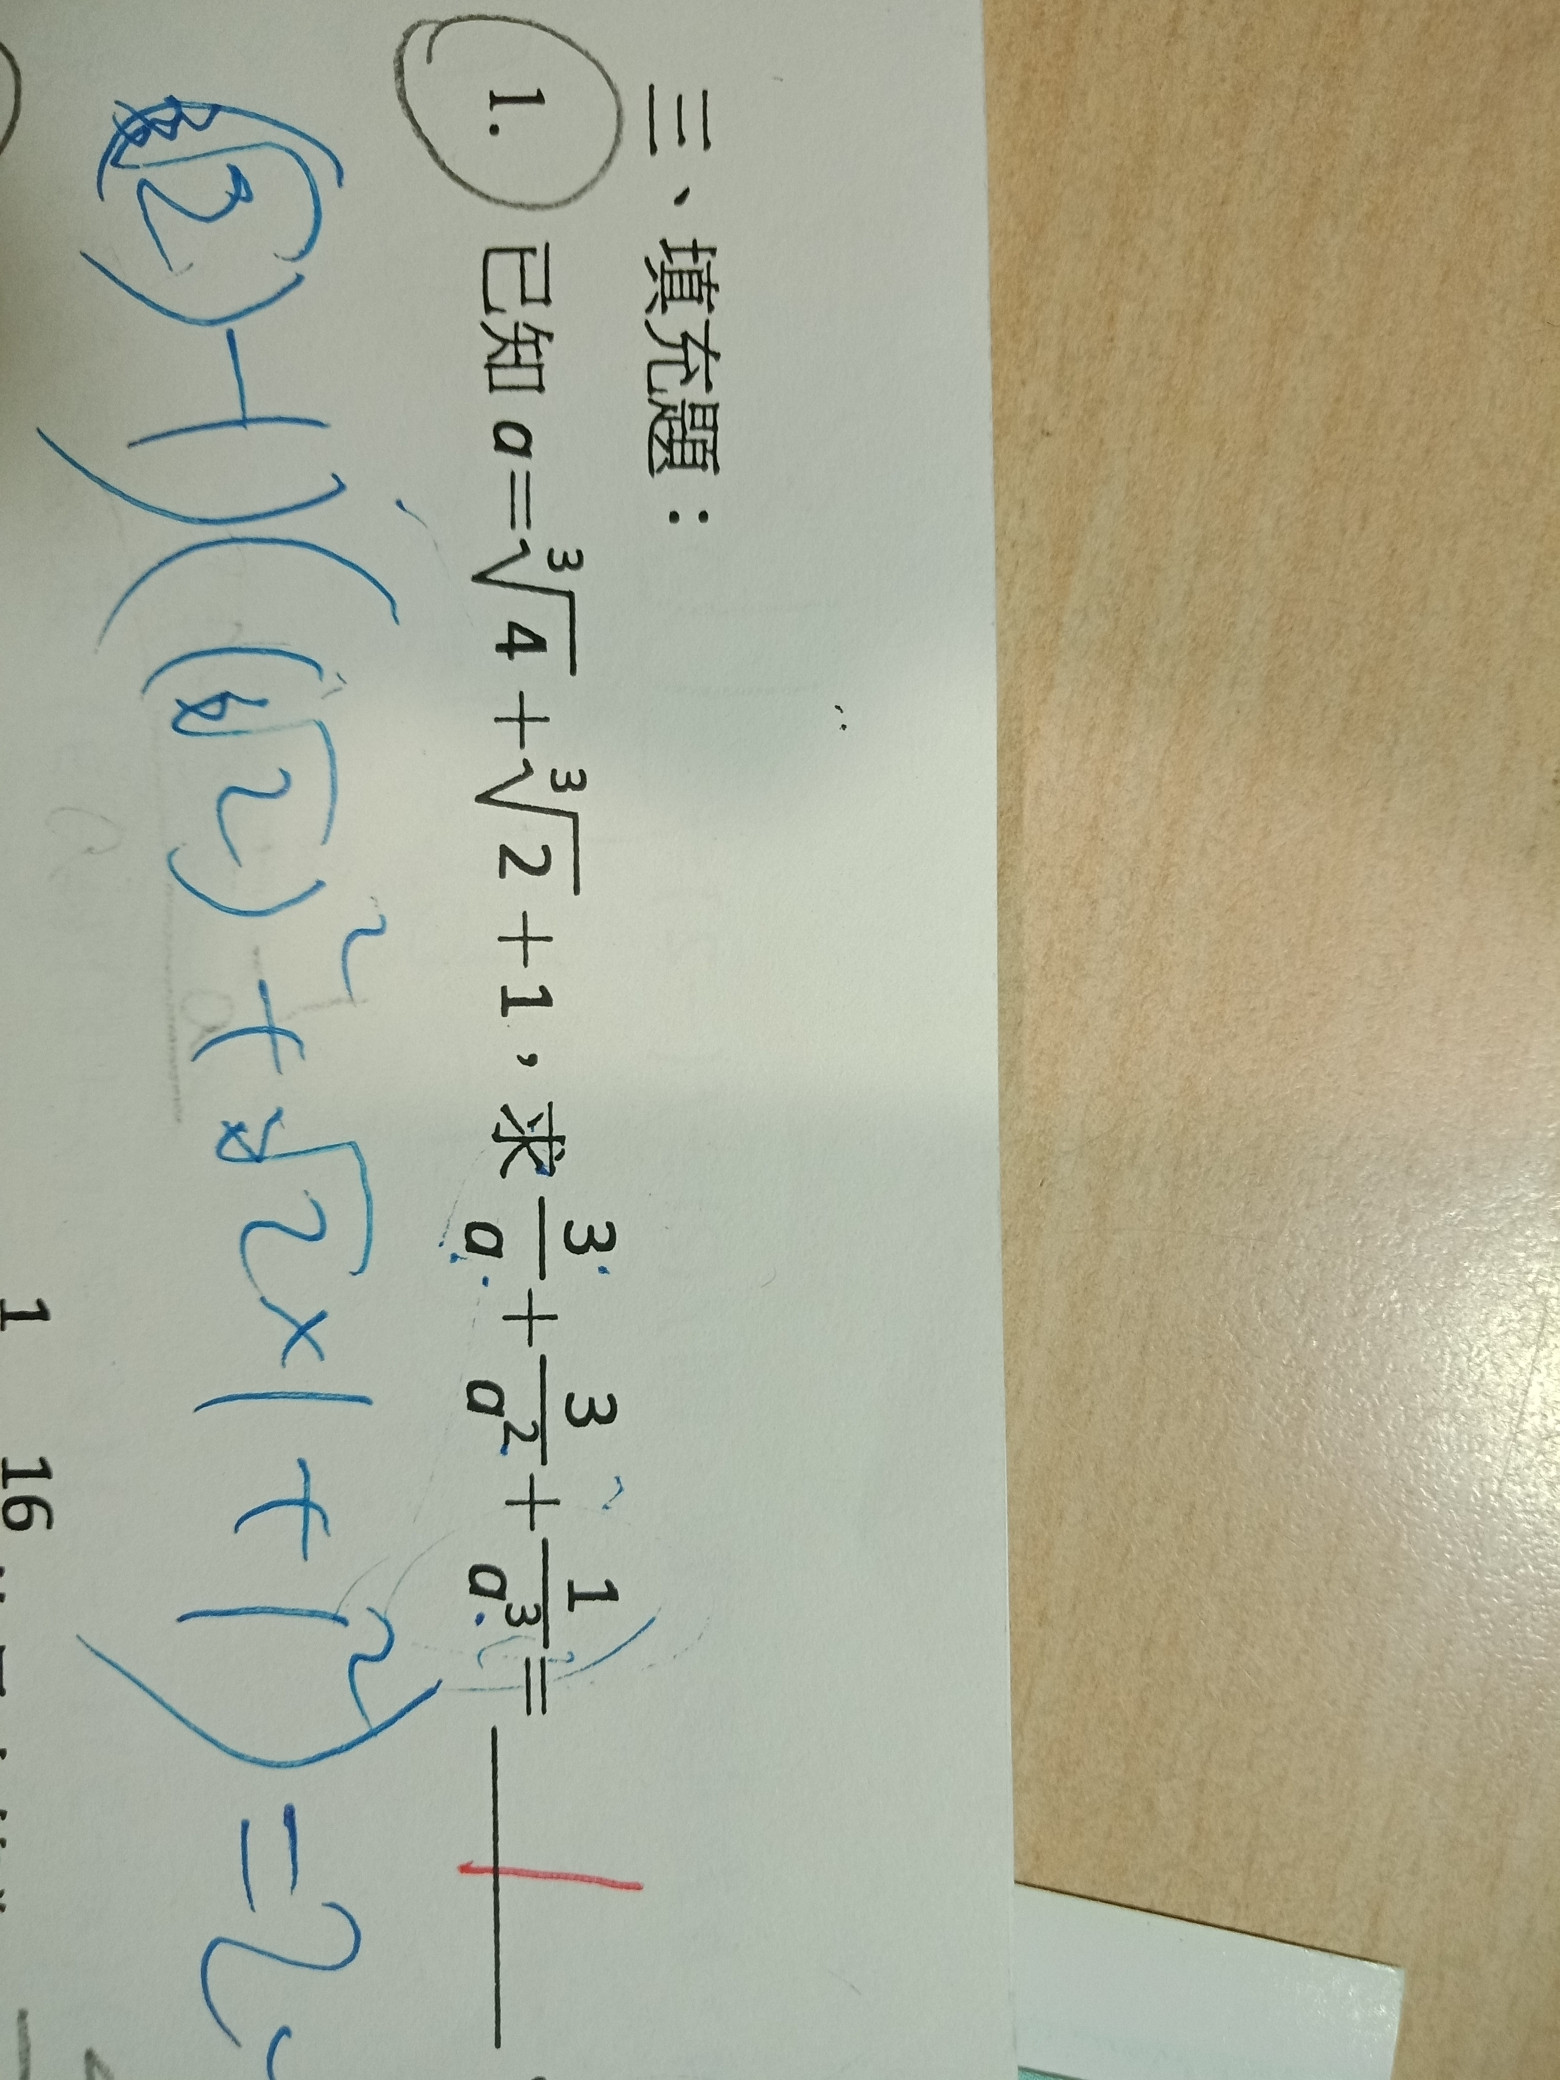 三、填充題：
1. 已知 a=∛4+∛2+1，求 3/a + 3/a² + 1/a³ =
(∛2)-1)((∛2)²+∛2×1+1²)=2-
1 16